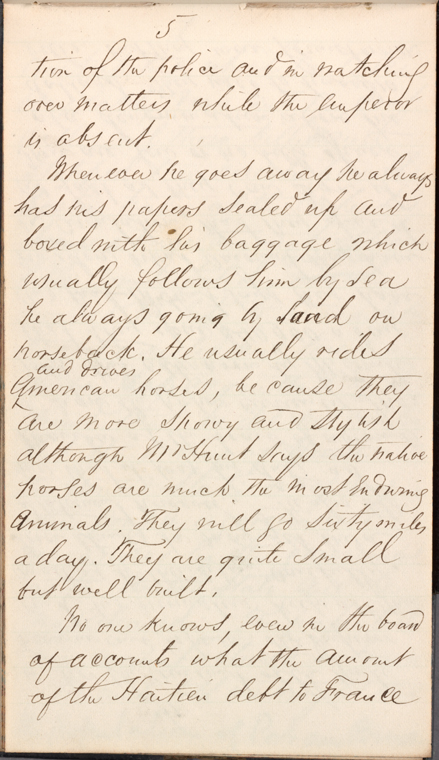 5
tion of the police and in watching
over matters while the emperor
is absent.
Whenever he goes away he always
has his papers sealed up and
boxed with his baggage which
usually follows him by sea
he always going by land on
horseback. He usually rides
and drives
American horses, because they
are more showy and stylish
although Mr Hunt says the native
horses are much the most enduring
animals. They will go sixty miles
a day. They are quite small
but well built.
No one knows, even in the board
of accounts what the amount
of the Haitien debt to France